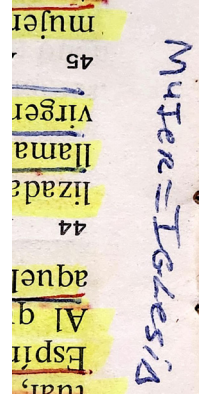 tual,
Espír
Al q
aquel
44
lizada
llama
virgen
45
mujer
MUJER=IGLesiA